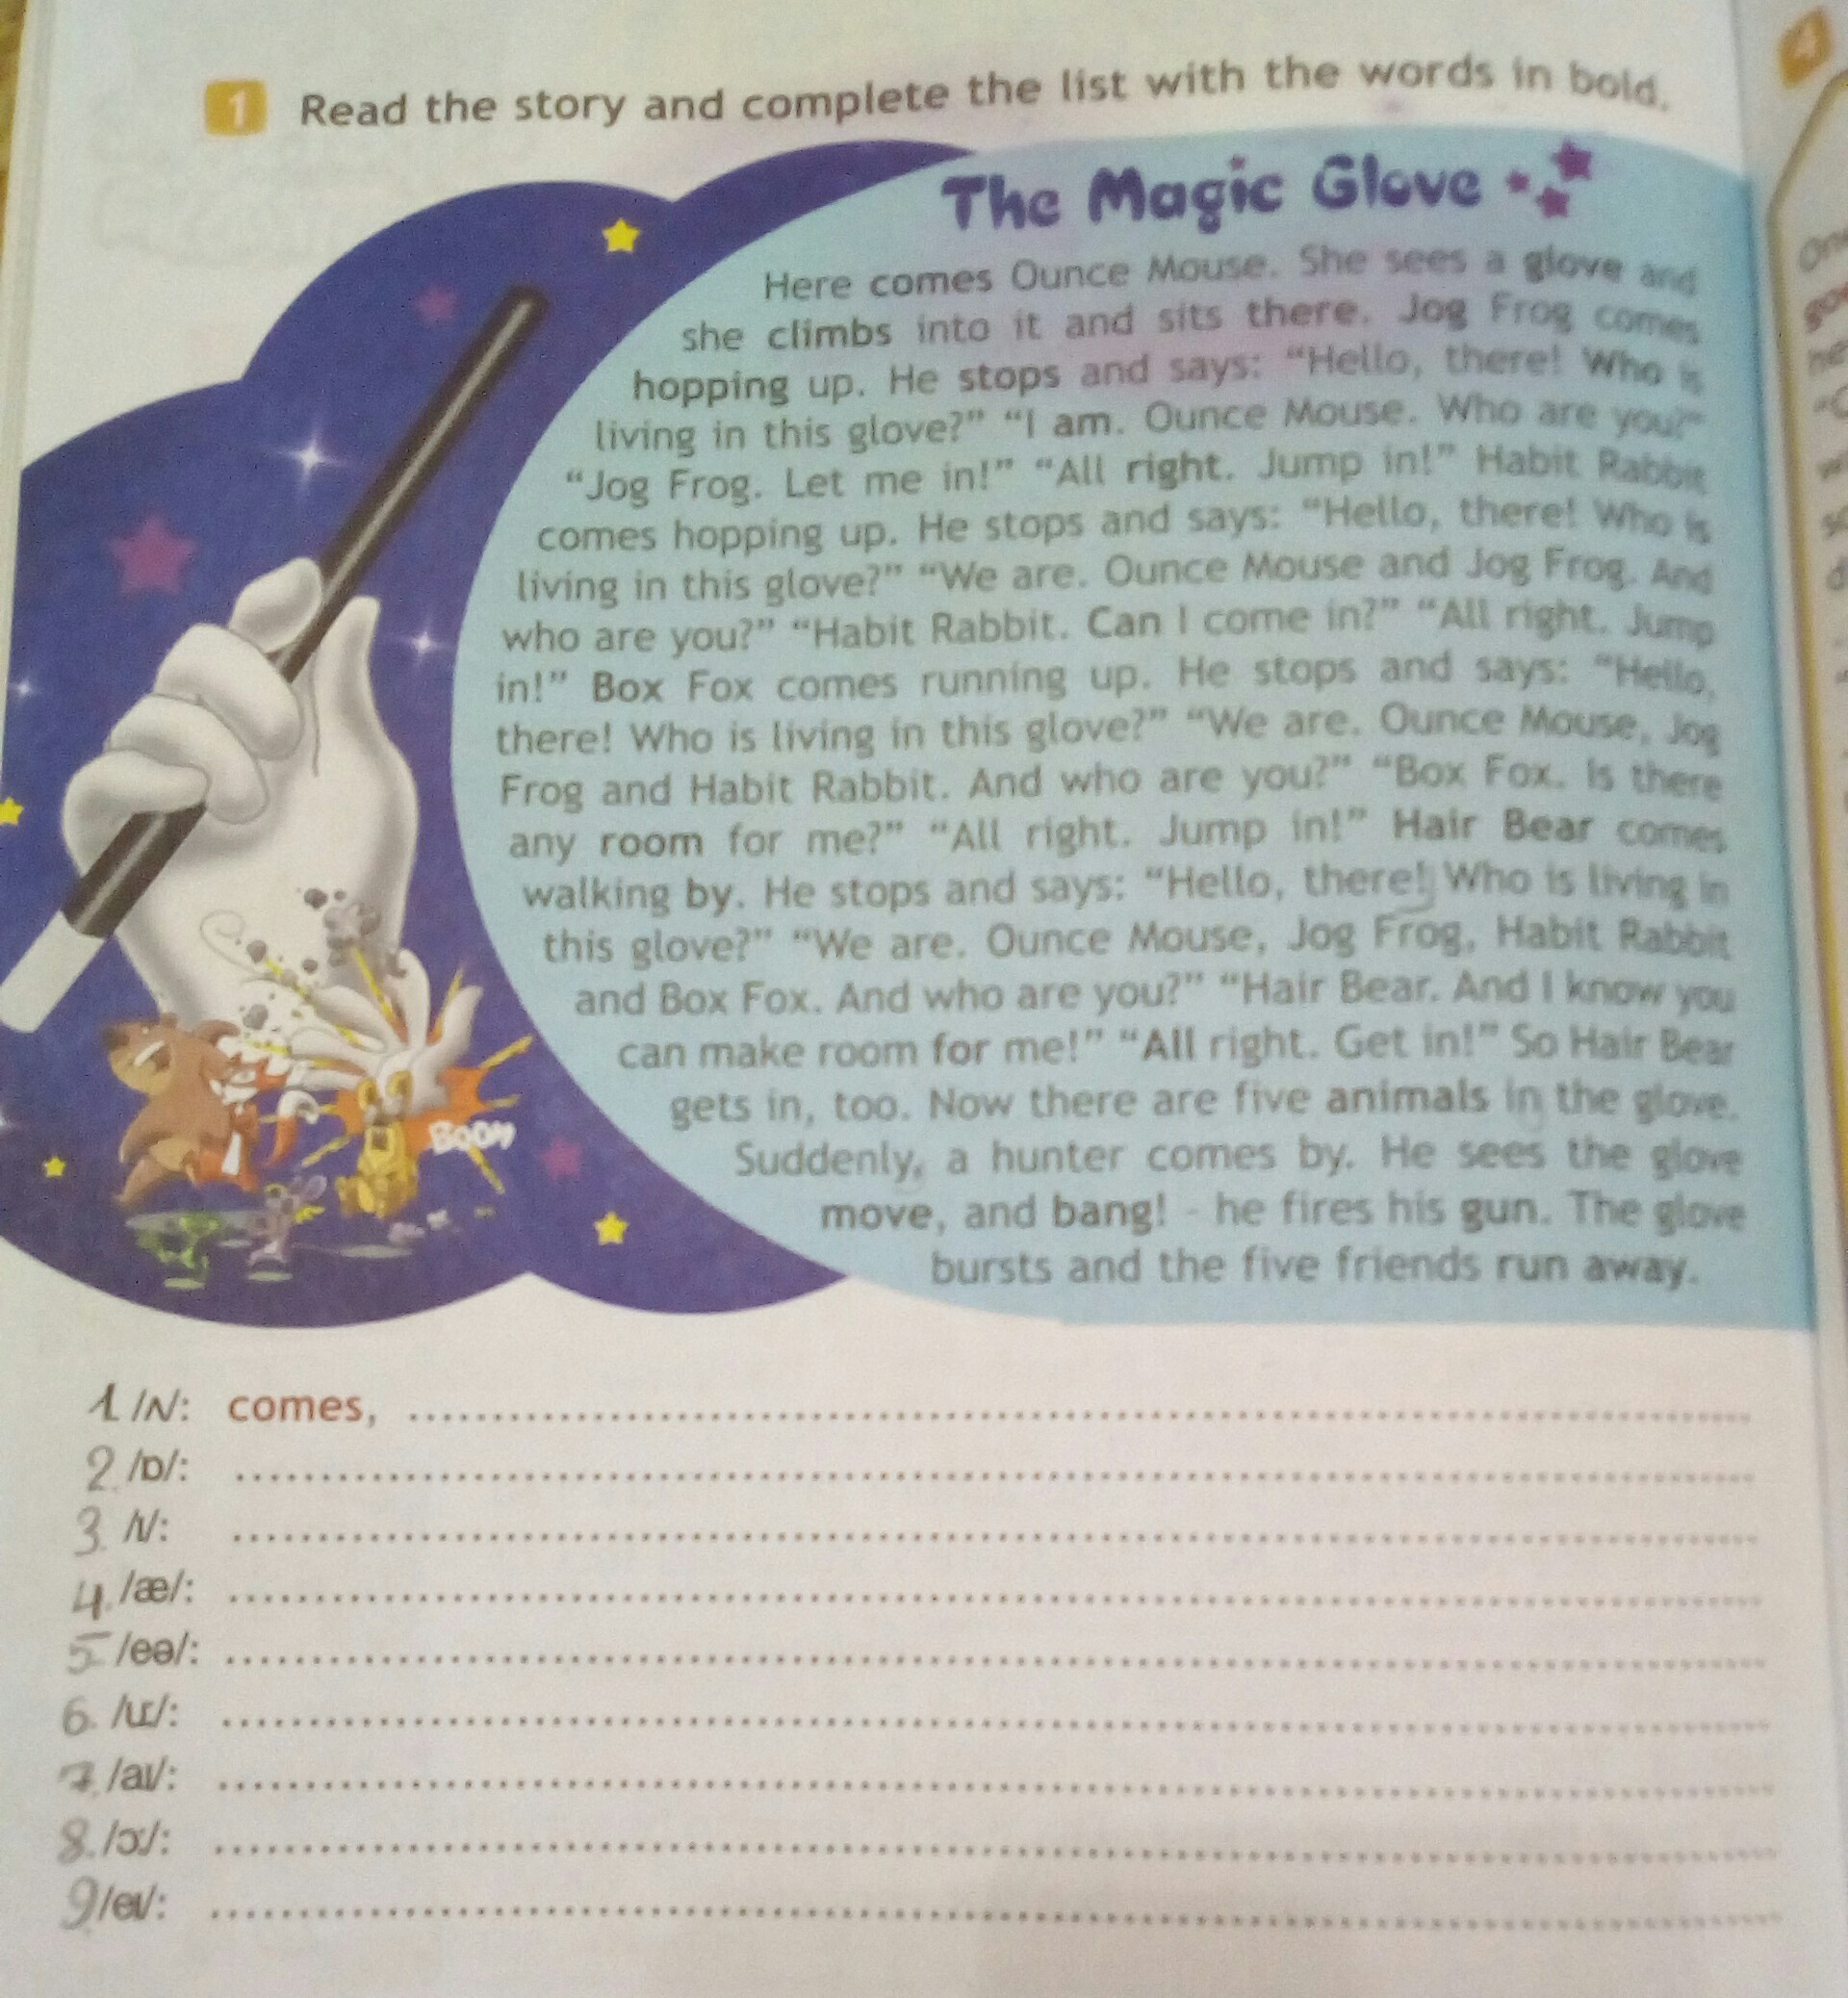 1 Read the story and complete the list with the words in bold.
The Magic Glove
Here comes Ounce Mouse. She sees a glove and
she climbs into it and sits there. Jog Frog comes
hopping up. He stops and says: “Hello, there! Who is
living in this glove?” “I am. Ounce Mouse. Who are you?”
“Jog Frog. Let me in!” “All right. Jump in!” Habit Rabbit
comes hopping up. He stops and says: “Hello, there! Who is
living in this glove?” “We are. Ounce Mouse and Jog Frog. And
who are you?” “Habit Rabbit. Can I come in?” “All right. Jump
in!” Box Fox comes running up. He stops and says: “Hello,
there! Who is living in this glove?” “We are. Ounce Mouse, Jog
Frog and Habit Rabbit. And who are you?” “Box Fox. Is there
any room for me?” “All right. Jump in!” Hair Bear comes
walking by. He stops and says: “Hello, there! Who is living in
this glove?” “We are. Ounce Mouse, Jog Frog, Habit Rabbit
and Box Fox. And who are you?” “Hair Bear. And I know you
can make room for me!” “All right. Get in!” So Hair Bear
gets in, too. Now there are five animals in the glove.
Suddenly, a hunter comes by. He sees the glove
move, and bang! - he fires his gun. The glove
bursts and the five friends run away.
BOOM
1. /ʌ/: comes, ..........
2. /ɒ/: ..........
3. /ɪ/: ..........
4. /æ/: ..........
5 /eə/: ..........
6. /uː/: ..........
7. /aɪ/: ..........
8. /ɔː/: ..........
9 /eɪ/: ..........
4